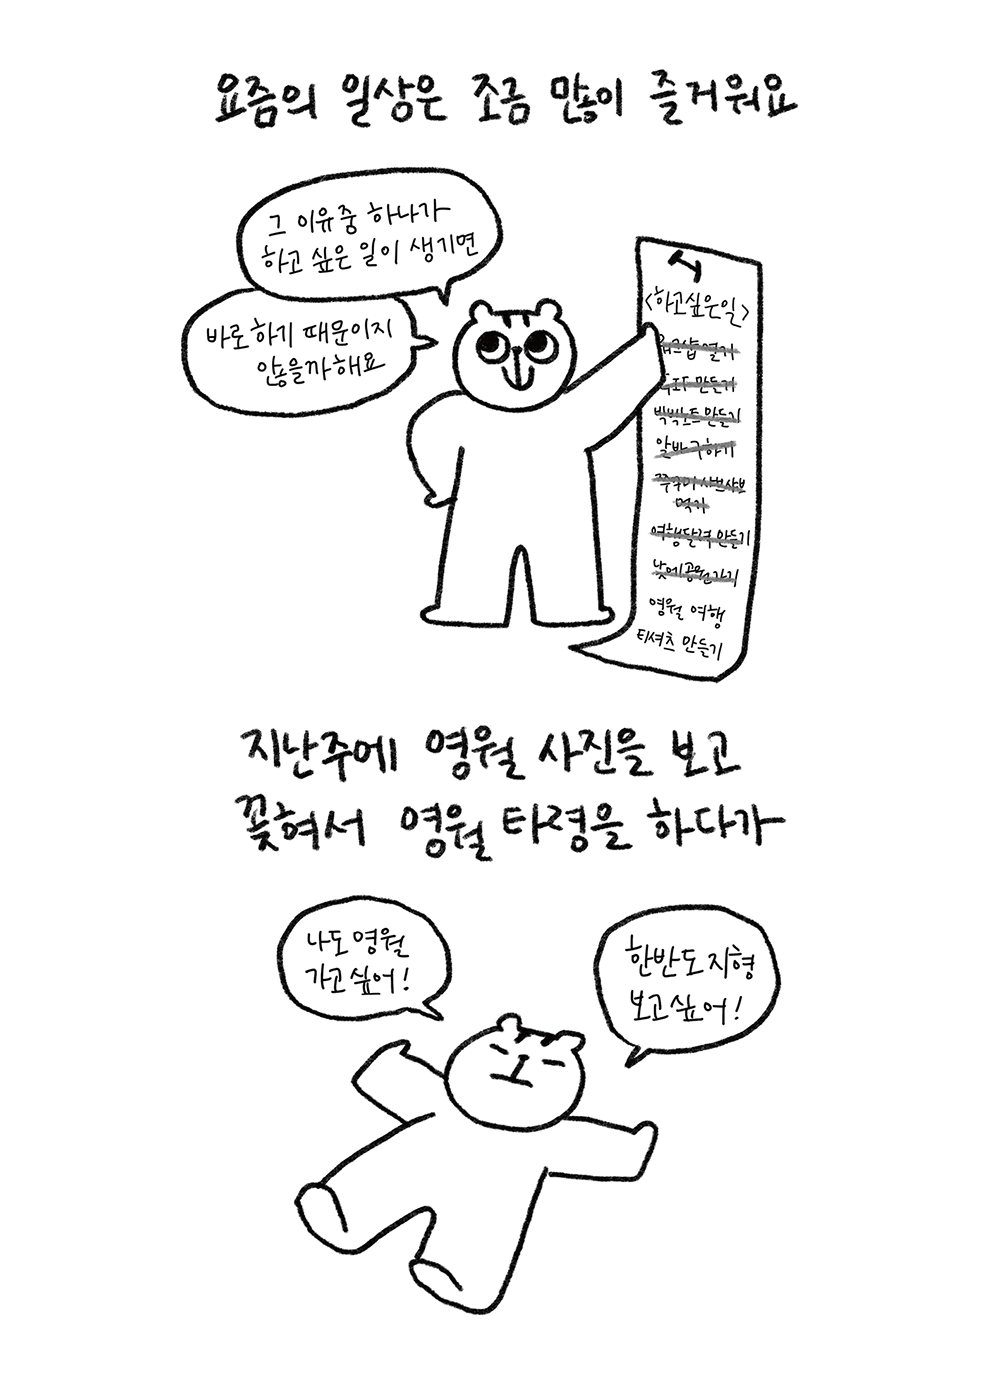 요즘의 일상은 조금 많이 즐거워요
그 이유 중 하나가
하고 싶은 일이 생기면
바로 하기 때문이지
않을까 해요
<하고싶은일>
워크샵 열기
만들기
빅빅노트 만들기
알바 구하기
쭈꾸미 샤브샤브
먹기
여행달력 만들기
낮에 공원가기
영월 여행
티셔츠 만들기
지난주에 영월 사진을 보고
꽂혀서 영월 타령을 하다가
나도 영월
가고싶어!
한반도 지형
보고싶어!